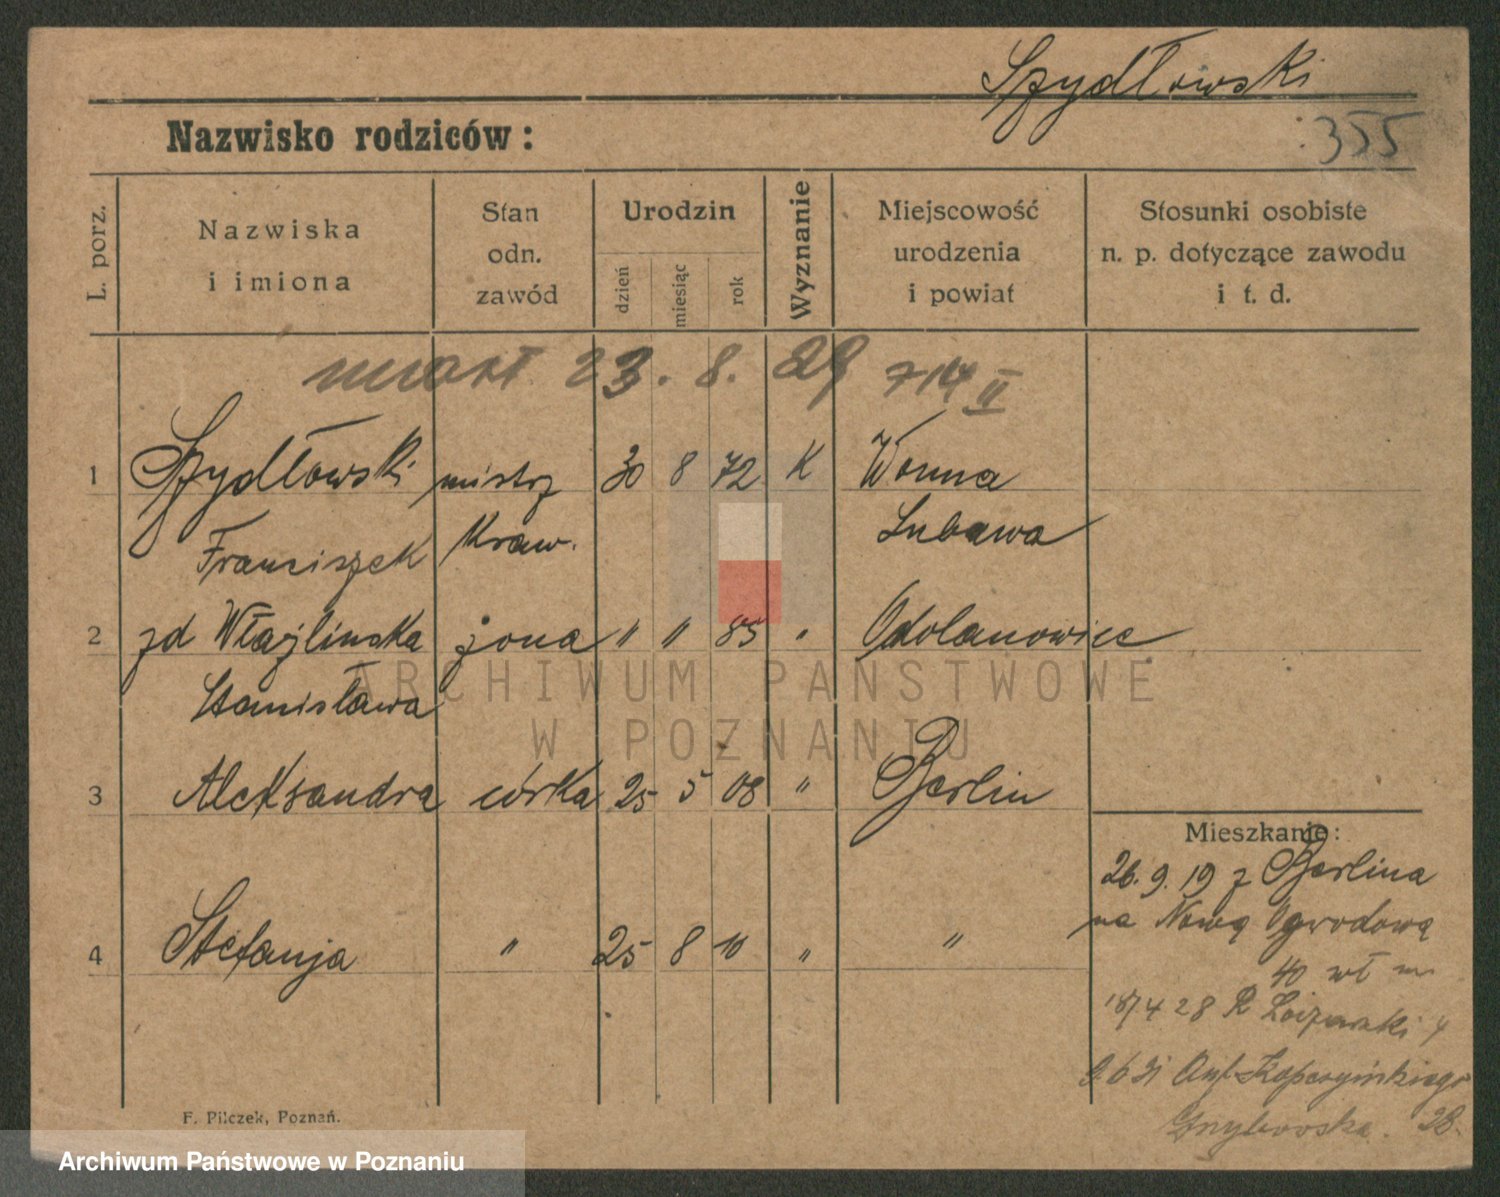 Szydłowski
355
Nazwisko rodziców:
L. porz.
Nazwiska
i imiona
Stan
odn.
zawód
Urodzin
dzień
miesiąc
rok
Wyznanie
Miejscowość
urodzenia
i powiat
Stosunki osobiste
n. p. dotyczące zawodu
i t. d.
umarł 23. 8. 29 714 II
1 Szydłowski mistrz 30 8 72 K Wonna
Franciszek Kraw. Lubawa
2 zd Właźlinska żona " " 85 " Odolanowice
Stanisława
3 Aleksandra córka 25 5 08 " Berlin
4 Stefanja " 25 8 10 " "
Mieszkanie:
26. 9. 19 z Berlina
na Nową Ogrodową
40 wł m
28 R
28.
F. Pilczek, Poznań.
ARCHIWUM PAŃSTWOWE
W POZNANIU
Archiwum Państwowe w Poznaniu